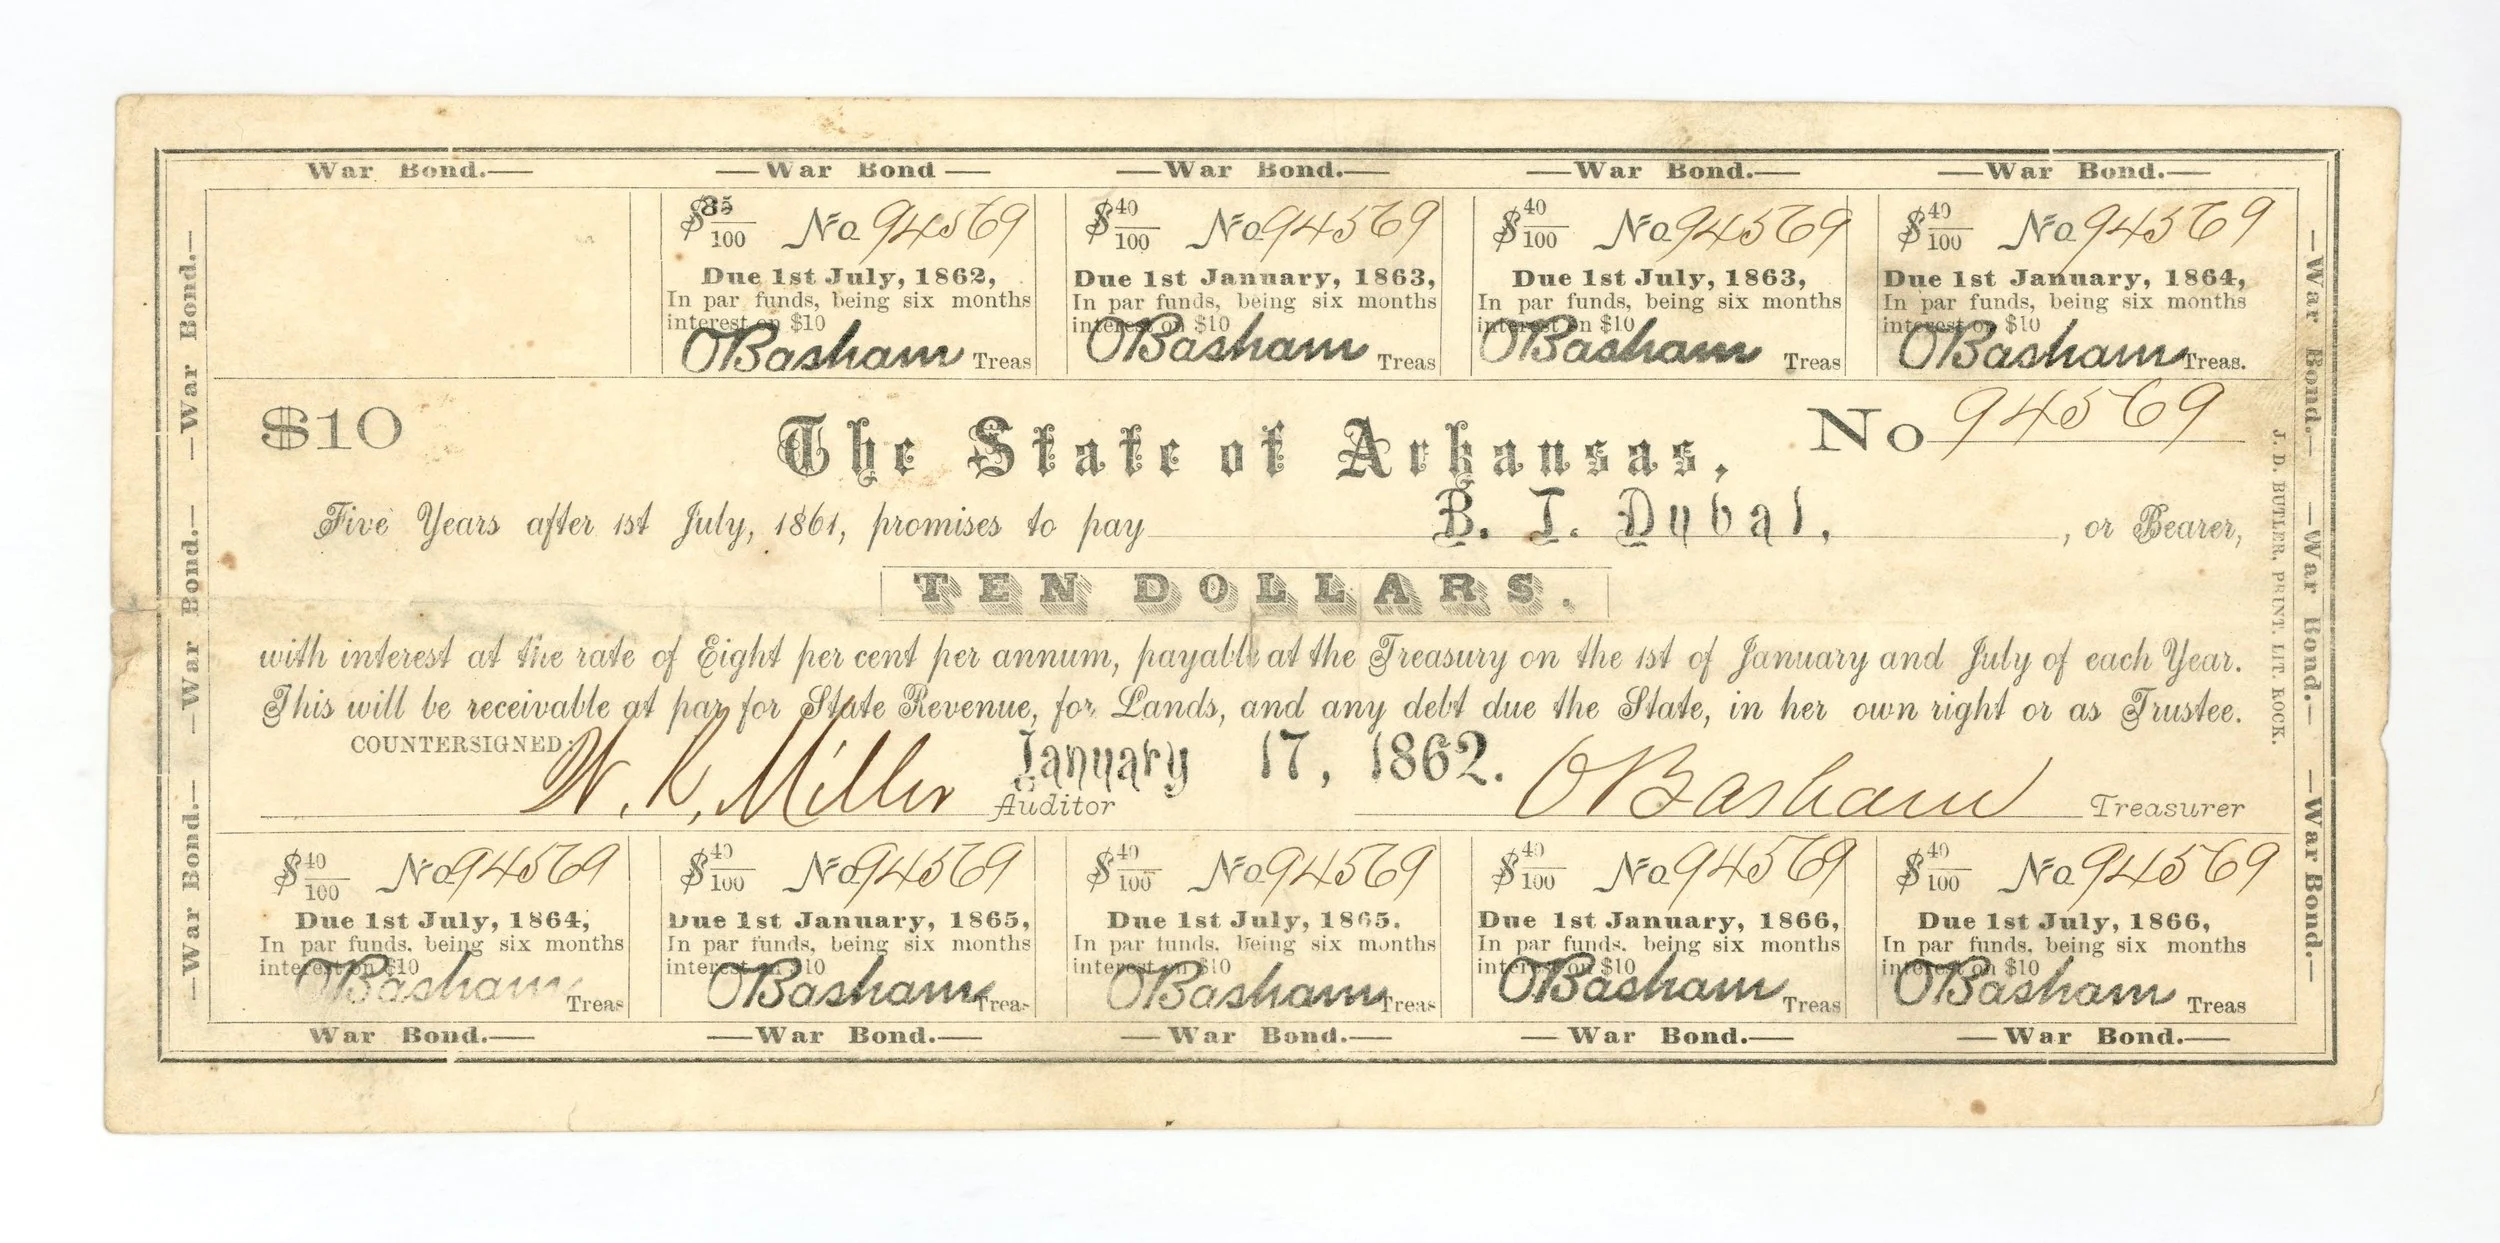 War Bond.— —War Bond— —War Bond.— —War Bond.— —War Bond.—
$35/100 No 94569
Due 1st July, 1862,
In par funds, being six months
interest on $10
OBasham Treas
$40/100 No 94569
Due 1st January, 1863,
In par funds, being six months
interest on $10
OBasham Treas
$40/100 No 94569
Due 1st July, 1863,
In par funds, being six months
interest on $10
OBasham Treas
$40/100 No 94569
Due 1st January, 1864,
In par funds, being six months
interest on $10
OBasham Treas.
$10 The State of Arkansas, No 94569
Five Years after 1st July, 1861, promises to pay B. T. Dubal, , or Bearer,
TEN DOLLARS.
with interest at the rate of Eight per cent per annum, payable at the Treasury on the 1st of January and July of each Year.
This will be receivable at par for State Revenue, for Lands, and any debt due the State, in her own right or as Trustee.
COUNTERSIGNED: January 17, 1862.
W. R. Miller Auditor OBasham Treasurer
$40/100 No 94569
Due 1st July, 1864,
In par funds, being six months
interest on $10
OBasham Treas
$40/100 No 94569
Due 1st January, 1865,
In par funds, being six months
interest on $10
OBasham Treas
$40/100 No 94569
Due 1st July, 1865,
In par funds, being six months
interest on $10
OBasham Treas
$40/100 No 94569
Due 1st January, 1866,
In par funds, being six months
interest on $10
OBasham Treas
$40/100 No 94569
Due 1st July, 1866,
In par funds, being six months
interest on $10
OBasham Treas
War Bond.— —War Bond.— —War Bond.— —War Bond.— —War Bond.—
—War Bond.— —War Bond.— —War Bond.—
—War Bond.— —War Bond.— —War Bond.—
J. D. BUTLER, PRINT. LIT. ROCK.